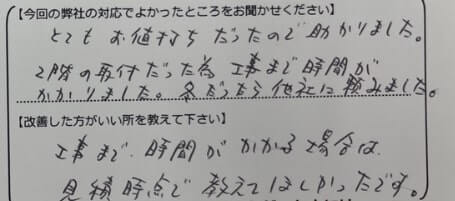 【今回の弊社の対応でよかったところをお聞かせください】
とてもお値打ちだったので助かりました。
2階の取付だった為、工事まで時間が
かかりました。冬だったら他社に頼みました。
【改善した方がいい所を教えて下さい】
工事まで、時間がかかる場合は
見積時点で教えてほしかったです。